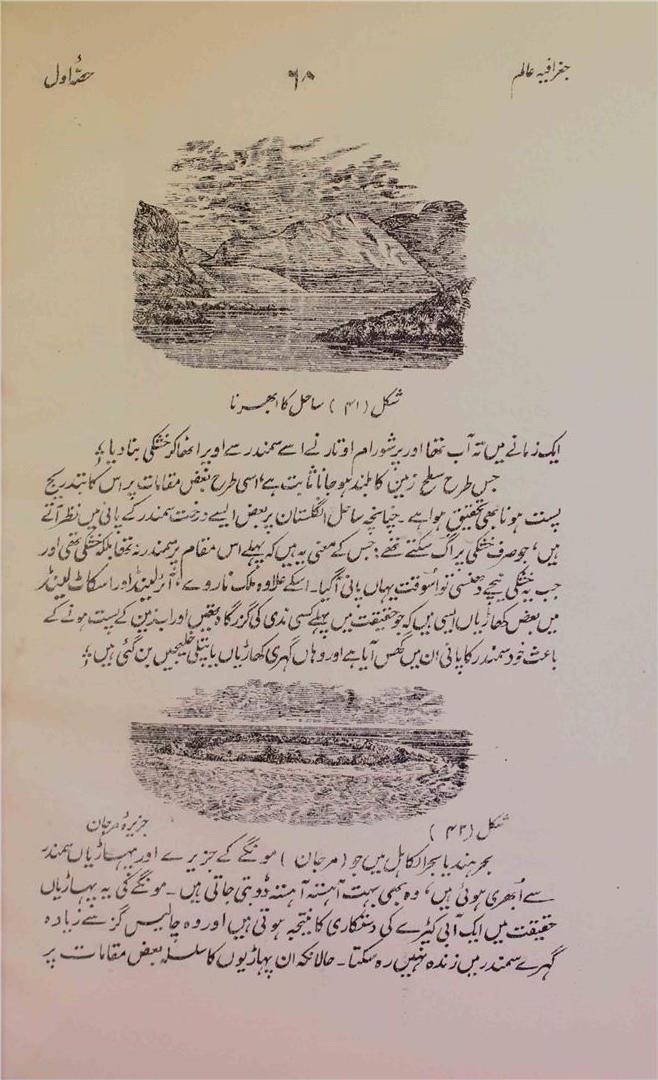 جغرافیہ عالم ۶۸ حصّہ اول
شکل (۴۱) ساحل کا ابھرنا
ایک زمانے میں تہ آب تھا اور پرشورام اوتار نے اسے سمندر سے اوپر اٹھا کر خشکی بنا دیا ؛
جس طرح سطح زمین کا بلند ہو جانا ثابت ہے، اسی طرح بعض مقامات پر اس کا بتدریج
پست ہونا بھی تحقیق ہوا ہے۔ چنانچہ ساحل انگلستان پر بعض ایسے درخت سمندر کے پانی میں نظر آتے
ہیں، جو صرف خشکی پر اگ سکتے تھے؛ جس کے معنی یہ ہیں کہ پہلے اس مقام پر سمندر نہ تھا بلکہ خشکی تھی اور
جب یہ خشکی نیچے دھنسی تو اسوقت یہاں پانی آ گیا۔ اسکے علاوہ ملک ناروے، آئرلینڈ اور اسکاٹ لینڈ
میں بعض کھاڑیاں ایسی ہیں کہ جو حقیقت میں پہلے کسی ندی کی گزر گاہ تھیں اور اب زمین کے پست ہونے کے
باعث خود سمندر کا پانی ان میں گھس آیا ہے اور وہاں گہری کھاڑیاں یا پتلی خلیجیں بن گئی ہیں ؛
شکل (۴۲) جزیرۂ مرجان
بحر ہند یا بحر الکاہل میں جو (مرجان) مونگے کے جزیرے اور پہاڑیاں سمندر
سے اُبھری ہوئی ہیں، وہ بھی بہت آہستہ آہستہ ڈوبتی جاتی ہیں۔ مونگے کی یہ پہاڑیاں
حقیقت میں ایک آبی کیڑے کی دستکاری کا نتیجہ ہوتی ہیں اور وہ چالیس گز سے زیادہ
گہرے سمندر میں زندہ نہیں رہ سکتا۔ حالانکہ ان پہاڑیوں کا سلسلہ بعض مقامات پر